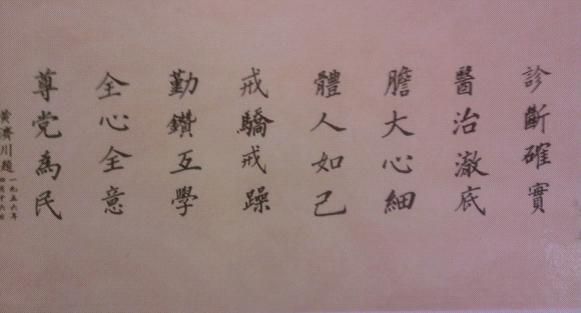 診斷確實
醫治澈底
膽大心細
體人如己
戒驕戒躁
勤鑽互學
全心全意
尊党為民
黃濟川題
一九五六年